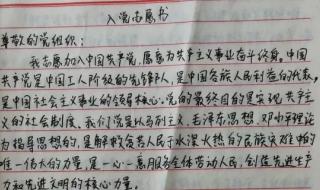 入党志愿书
尊敬的党组织：
我志愿加入中国共产党，愿意为共产主义事业奋斗终身。中国
共产党是中国工人阶级的先锋队，是中国各族人民利益的代表，
是中国社会主义事业的领导核心。党的最终目的是实现共产主
义的社会制度。我们党是以马列主义、毛泽东思想、邓小平理论
为指导思想的，是解救贫苦人民于水深火热的民族灾难中的
唯一伟大的力量，是一心一意服务全体劳动人民，创造先进生产
力和先进文明的核心力量。